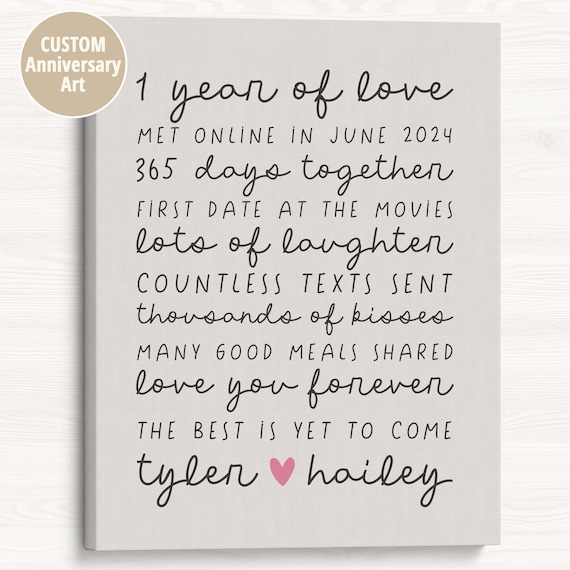 CUSTOM
Anniversary
Art
1 year of love
MET ONLINE IN JUNE 2024
365 days together
FIRST DATE AT THE MOVIES
lots of laughter
COUNTLESS TEXTS SENT
thousands of kisses
MANY GOOD MEALS SHARED
love you forever
THE BEST IS YET TO COME
tyler hailey